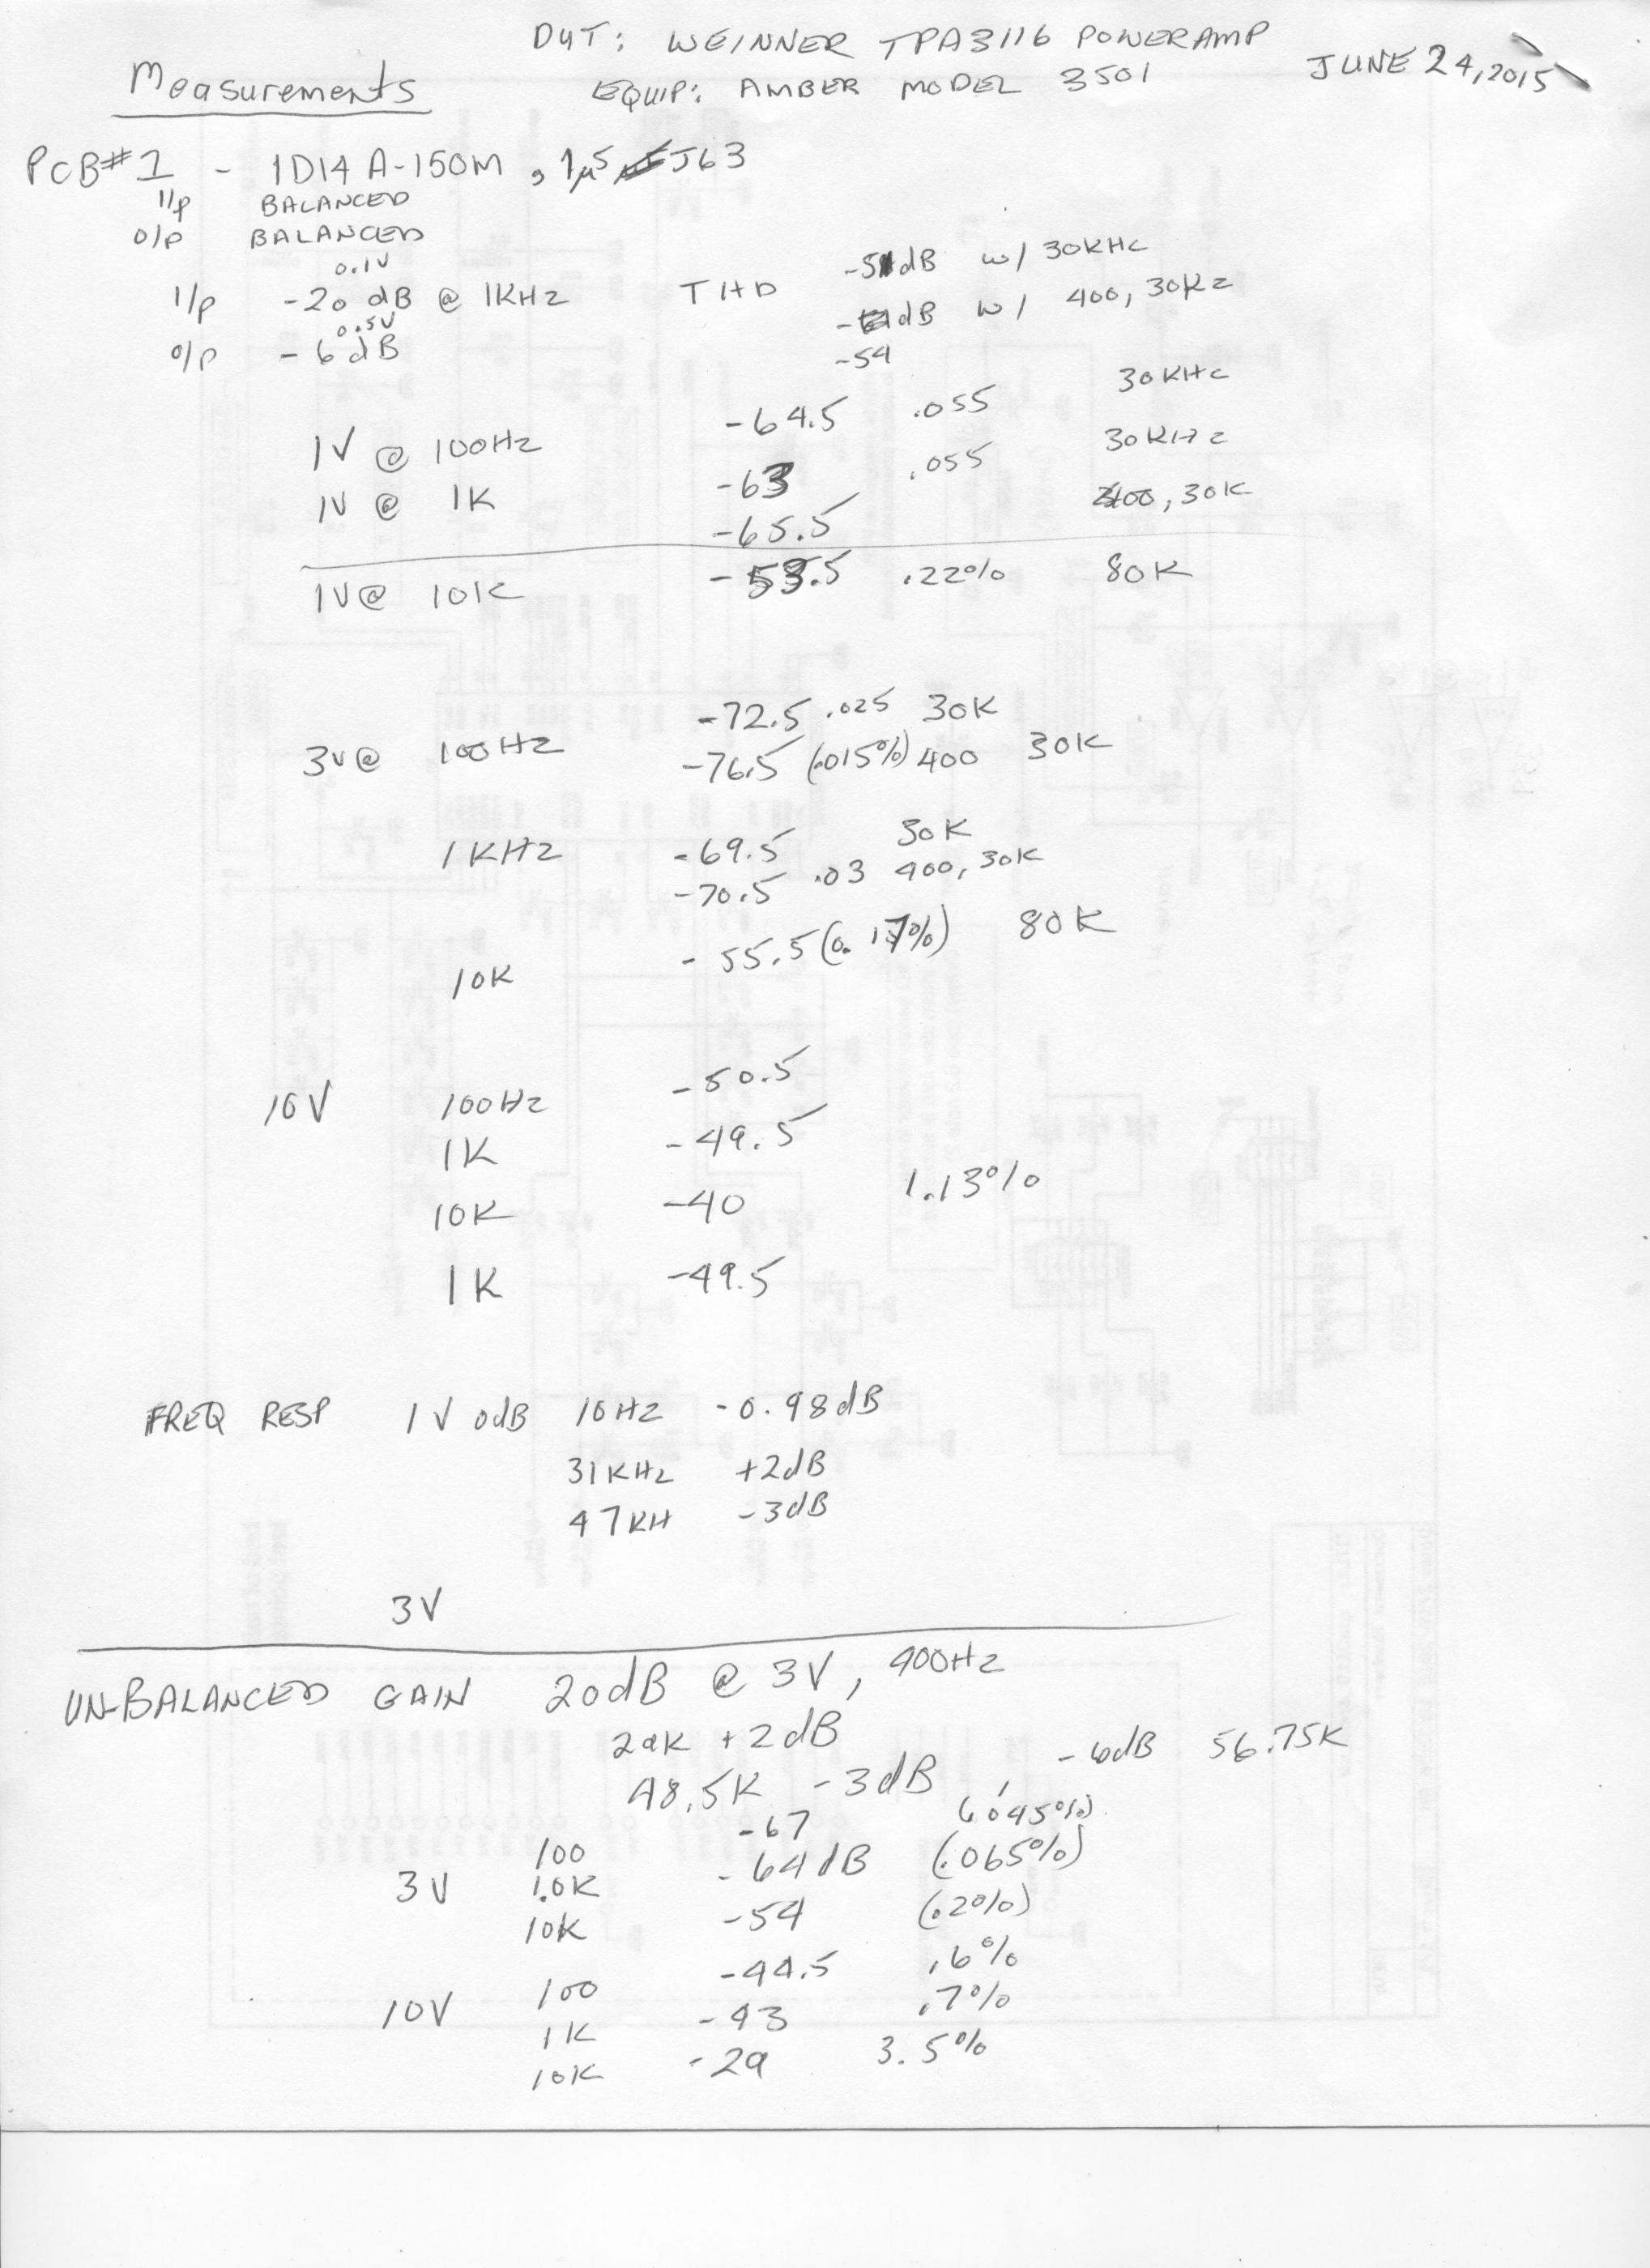 DUT: WEINNER TPA3116 POWERAMP
Measurements EQUIP: AMBER MODEL 3501 JUNE 24, 2015
PCB#1 - 1D14A-150M, 1µ5 J63
I/p BALANCED
O/P BALANCED
0.1V
I/p -20 dB @ 1KHz THD -51dB w/ 30KHz
0.5V
O/P -6dB dB w/ 400, 30Kz
-54
1V @ 100Hz -64.5 .055 30KHz
1V @ 1K -63 .055 30KHz
-65.5 400, 30K
1V @ 10K -53.5 .22% 80K
-72.5 .025 30K
3V @ 100Hz -76.5 (.015%) 400 30K
1KHz -69.5 30K
-70.5 .03 400, 30K
10K -55.5 (0.17%) 80K
10V 100Hz -50.5
1K -49.5
10K -40 1.13%
1K -49.5
FREQ RESP 1V 0dB 10Hz -0.98dB
31KHz +2dB
47KH -3dB
3V
UN-BALANCED GAIN 20dB @ 3V, 400Hz
29K +2dB
48.5K -3dB, -6dB 56.75K
100 -67 (.045%)
3V 1.0K -64dB (.065%)
10K -54 (.2%)
10V 100 -44.5 .6%
1K -43 .7%
10K -29 3.5%